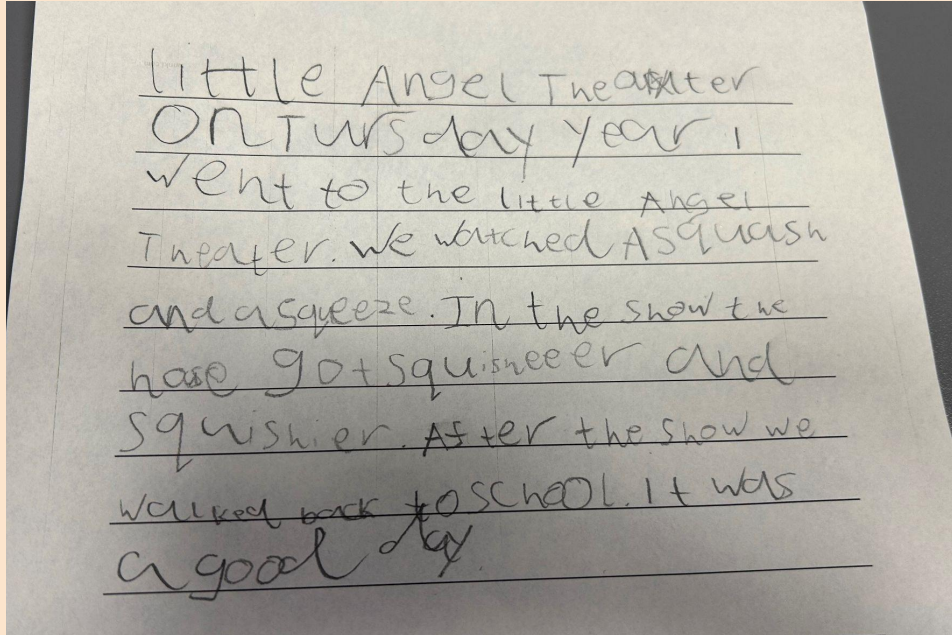 little Angel Theater
on Tursday year 1
went to the little Angel
Theater. We watched A squash
and a squeeze. In the show the
hose got squisheeer and
squishier. After the show we
walked back to school. It was
a good day.